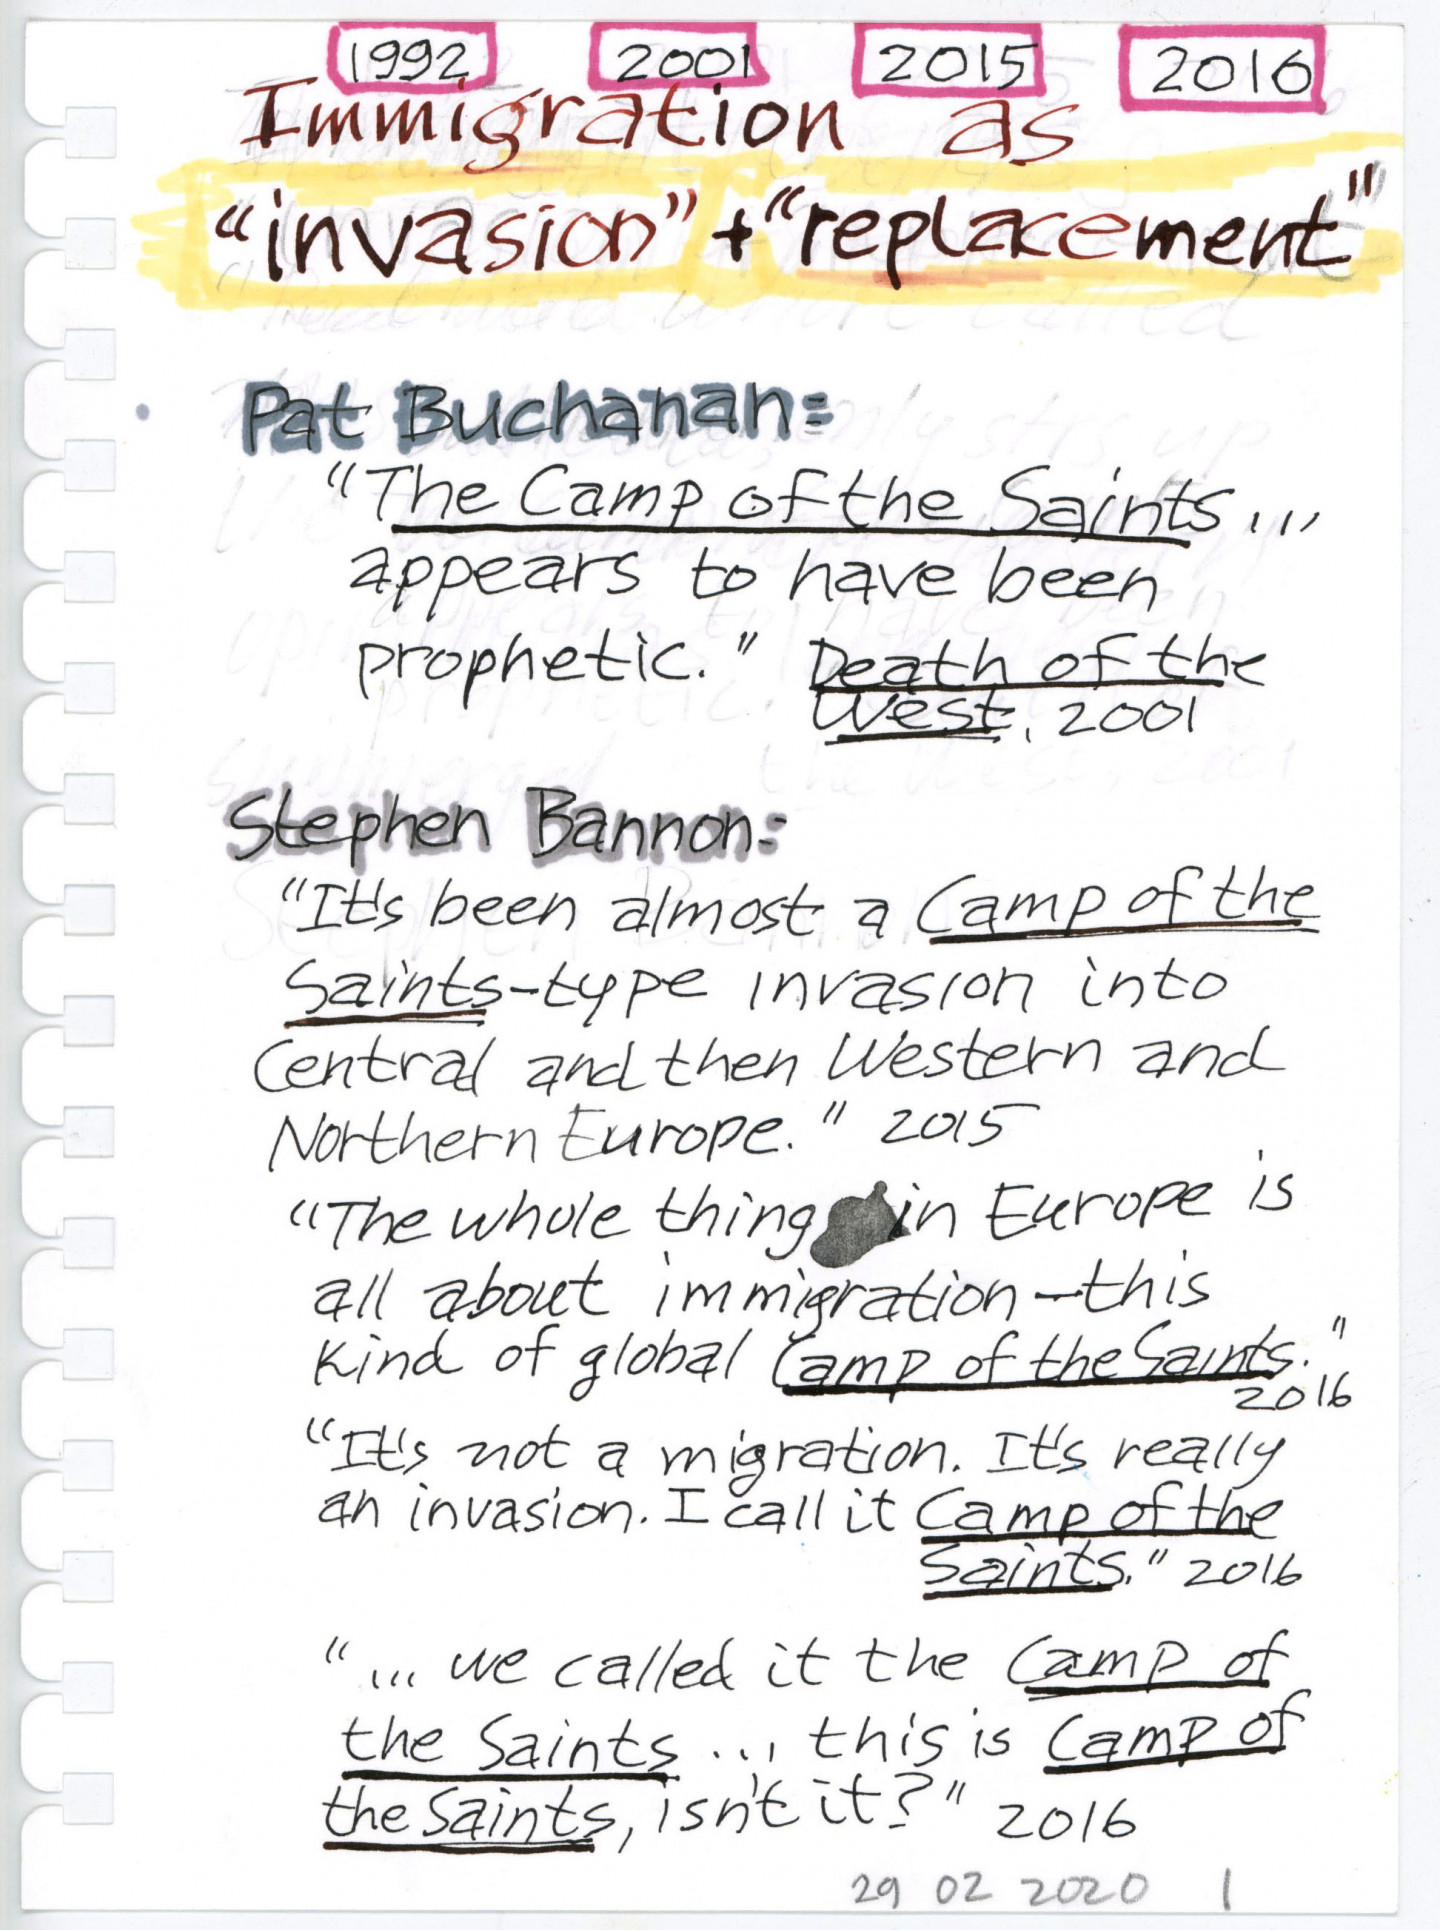 1992 2001 2015 2016
Immigration as
"invasion" + "replacement"
Pat Buchanan:
"The Camp of the Saints ...
appears to have been
prophetic." Death of the
West, 2001
Stephen Bannon:
"It's been almost a Camp of the
Saints-type invasion into
Central and then Western and
Northern Europe." 2015
"The whole thing in Europe is
all about immigration—this
kind of global Camp of the Saints."
2016
"It's not a migration. It's really
an invasion. I call it Camp of the
Saints." 2016
"... we called it the Camp of
the Saints ... this is Camp of
the Saints, isn't it?" 2016
29 02 2020 1